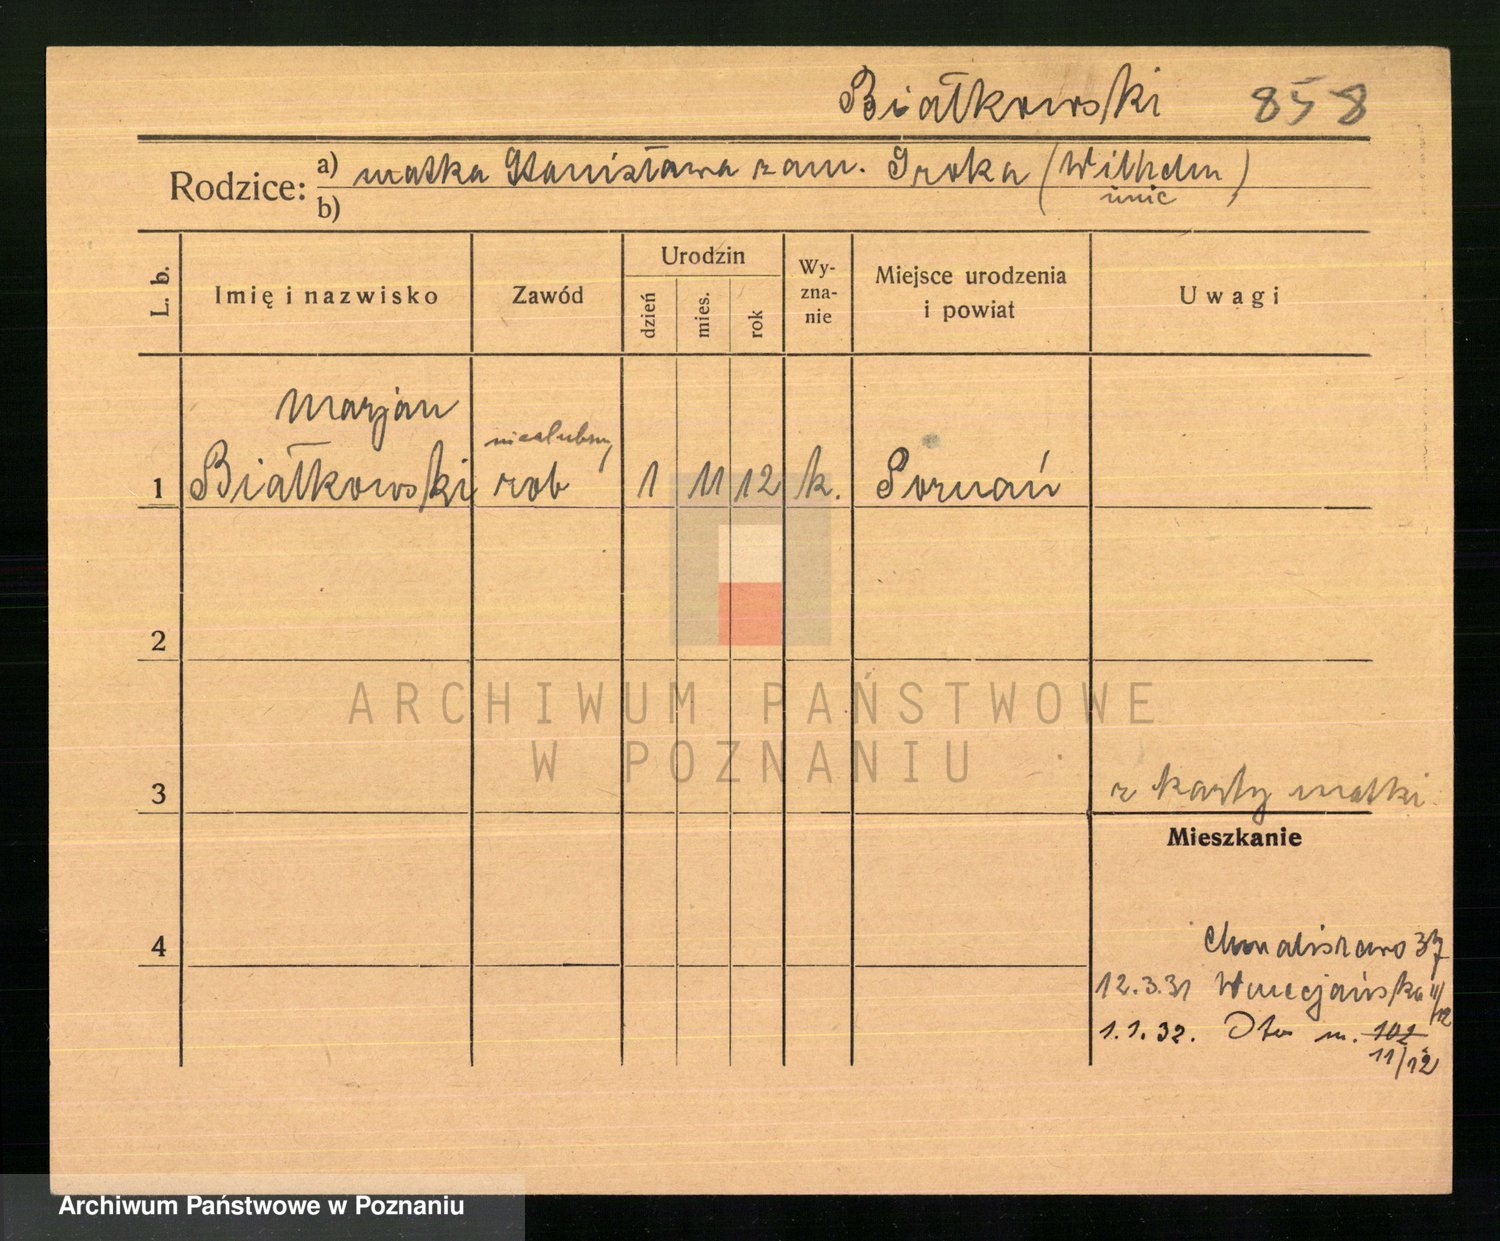 Białkowski 858
Rodzice: a) matka Stanisława zam. Sroka (Wilhelm)
b)
L. b.
Imię i nazwisko
Zawód
Urodzin
dzień
mies.
rok
Wy-
zna-
nie
Miejsce urodzenia
i powiat
Uwagi
Marjan
nieślubny
1 Białkowski rob 1 11 12 k. Poznań
2
3
z karty matki
Mieszkanie
4
Chwaliszewo 37
12.3.31 Wenecjańska 11/12
1.1.32. Dto m. 102
11/12
ARCHIWUM PAŃSTWOWE
W POZNANIU
Archiwum Państwowe w Poznaniu